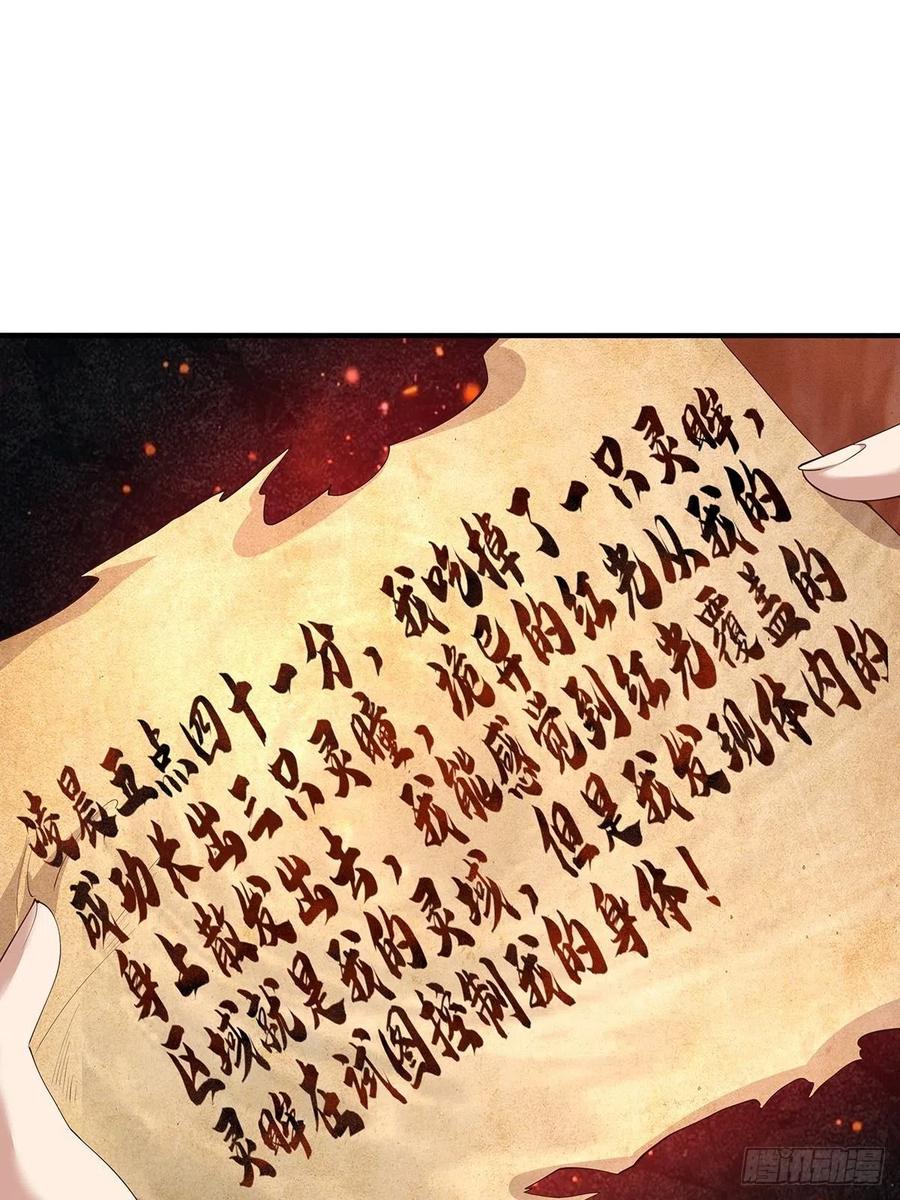 凌晨五点四十一分，我吃掉了一只灵眸，
成功长出三只灵瞳，诡异的红光从我的
身上散发出去，我能感觉到红光覆盖的
区域就是我的灵域，但是我发现体内的
灵眸在试图控制我的身体！
腾讯动漫